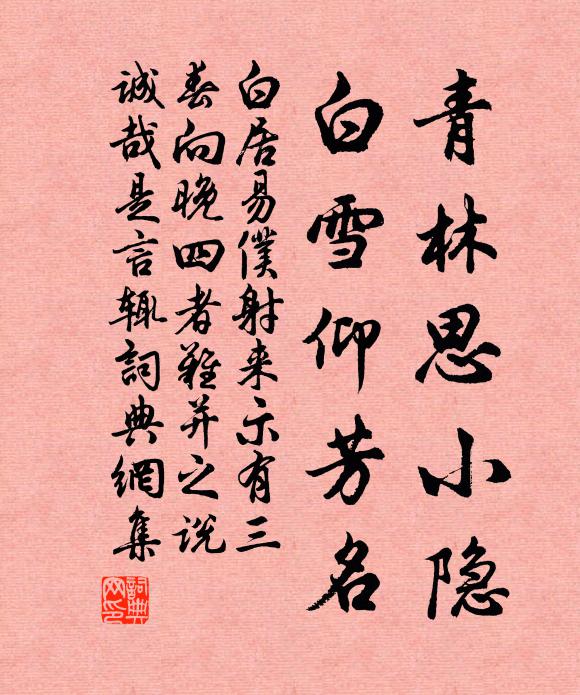 青林思小隐
白雪仰芳名
白居易僕射来示有三
春向晚四者難并之说
诚哉是言輒詞典網集
詞典網印